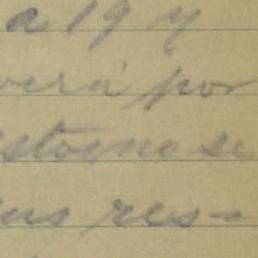 a 19 y
verá por
estogno se
us res-